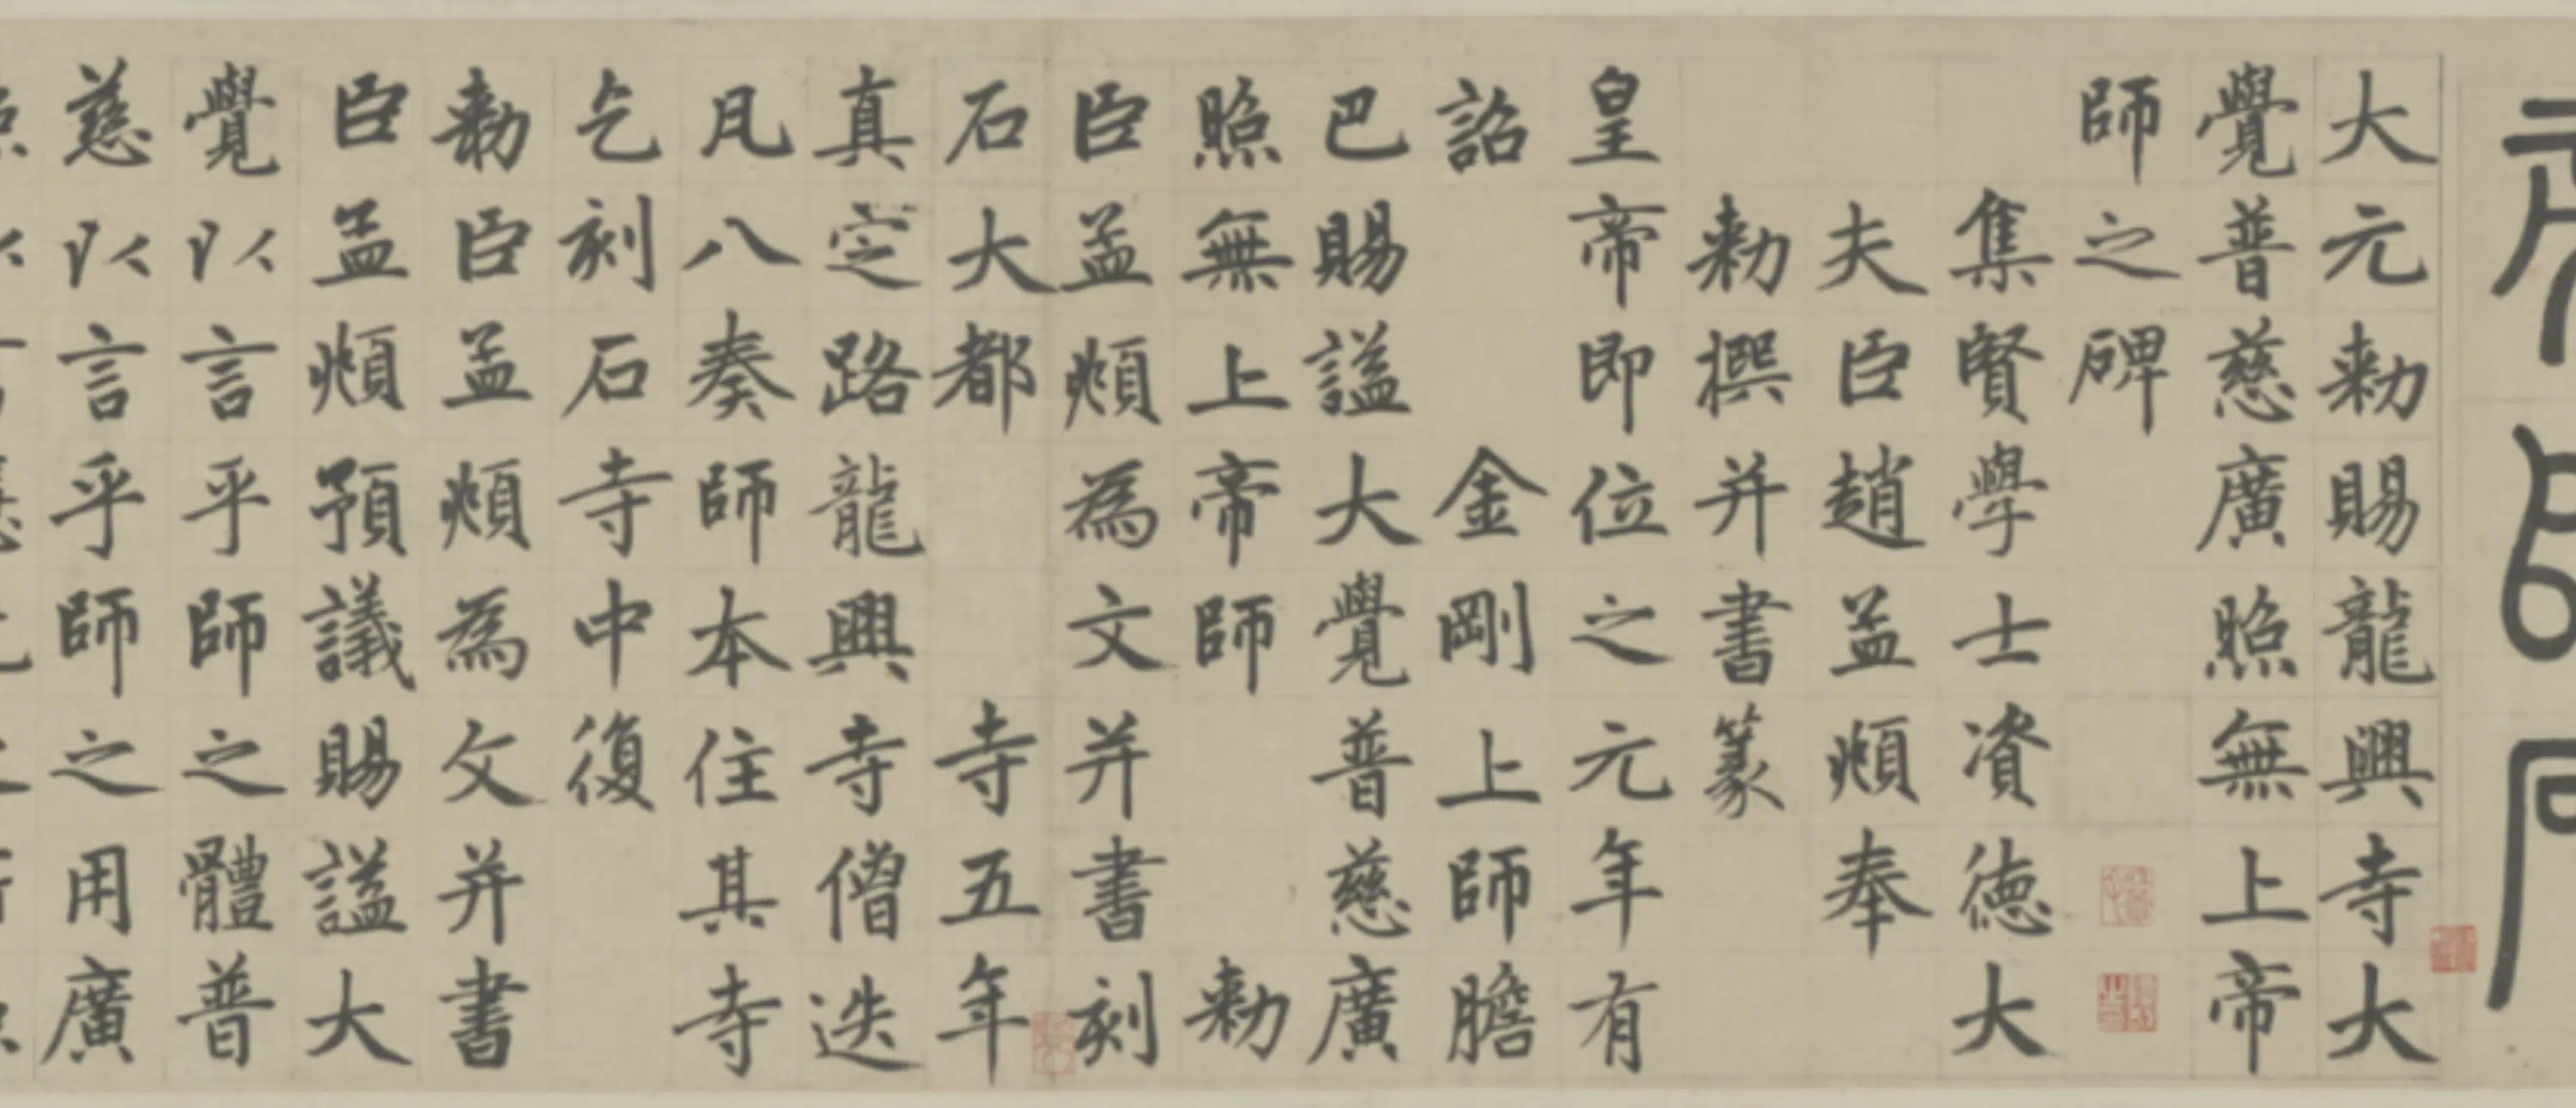 大元勑賜龍興寺大
覺普慈廣照無上帝
師之碑
集賢學士資德大
夫臣趙孟頫奉
勑撰并書篆
皇帝即位之元年有
詔金剛上師膽
巴賜謚大覺普慈廣
照無上帝師勑
臣孟頫為文并書刻
石大都寺五年
真定路龍興寺僧迭
凡八奏師本住其寺
乞刻石寺中復
勑臣孟頫為文并書
臣孟頫預議賜謚大
覺以言乎師之體普
慈以言乎師之用廣